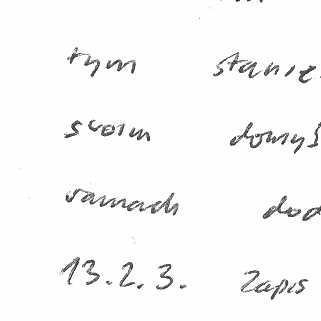 tym stanie
swoim domyś
ramach dod
13.2.3. Zapis